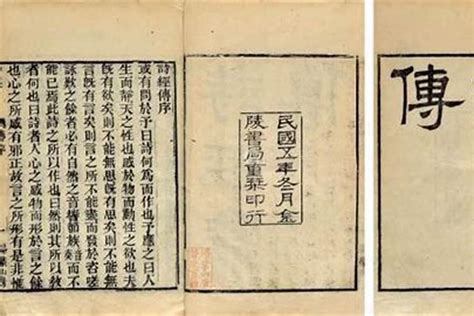 傳
民國五年冬月金
陵書局重栞印行
詩經傳序
或有問於予曰詩何為而作也予應之曰人
生而靜天之性也感於物而動性之欲也夫
既有欲矣則不能無思既有思矣則不能無
言既有言矣則言之所不能盡而發於咨嗟
詠歎之餘者必有自然之音響節族而不
能已焉此詩之所以作也曰然則其所以教
者何也曰詩者人心之感物而形於言之餘
也心之所感有邪正故言之所形有是非惟